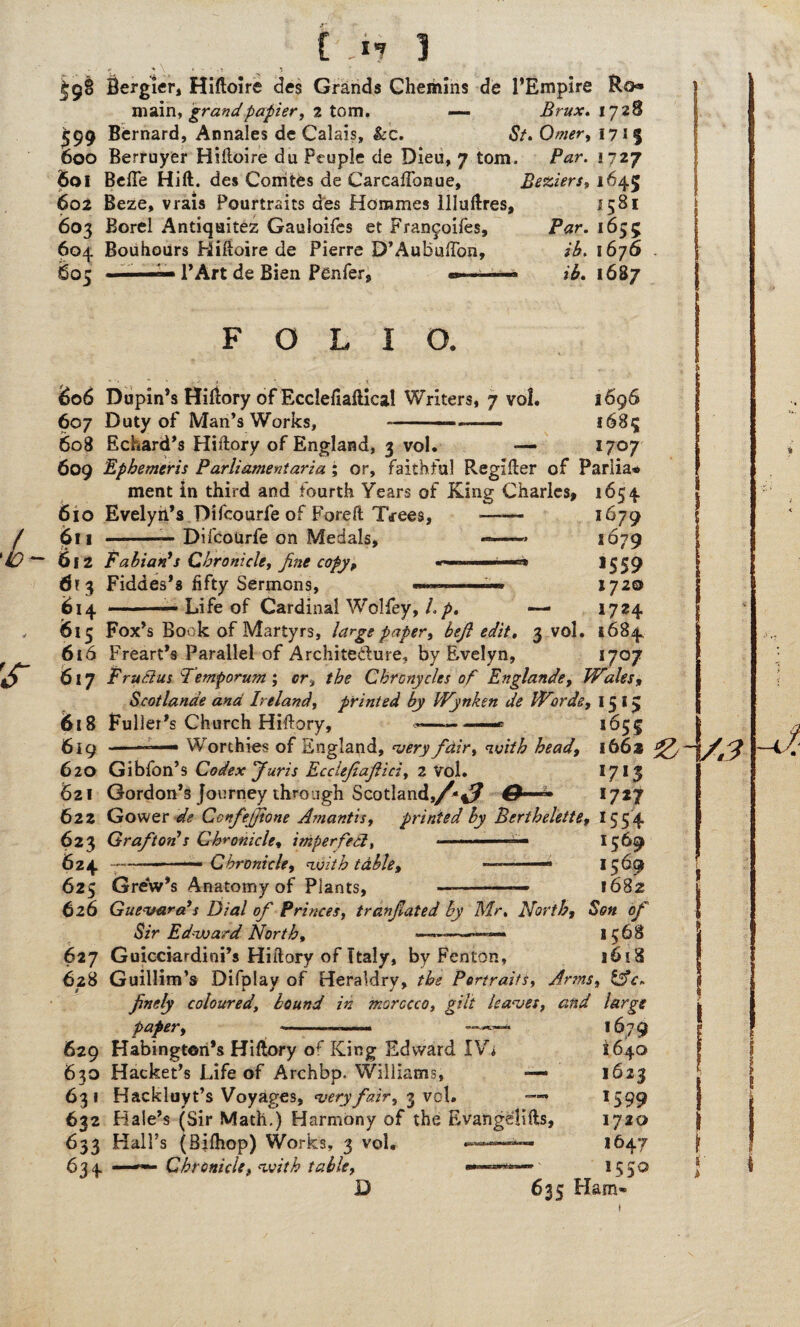 [ 17 ]
598 Bergier, Hiſtoire des Grands Chemins de l'Empire Ro-
main, grand papier, 2 tom. — Brux. 1728
599 Bernard, Annales de Calais, &c. St. Omer, 1715
600 Berruyer Hiſtoire du Peuple de Dieu, 7 tom. Par. 1727
601 Beſſe Hiſt. des Comtes de Carcaſſonue, Beziers, 1645
602 Beze, vrais Pourtraits des Hommes Illuſtres, 1581
603 Borel Antiquitez Gauloiſes et Françoiſes, Par. 1655
604 Bouhours Hiſtoire de Pierre D'Aubuſſon, ib. 1676
605 ——— l'Art de Bien Penſer, ——— ib. 1687
FOLIO.
606 Dupin's Hiſtory of Eccleſiaſtical Writers, 7 vol. 1696
607 Duty of Man's Works, ——— 1685
608 Echard's Hiſtory of England, 3 vol. — 1707
609 Ephemeris Parliamentaria; or, faithful Regiſter of Parlia-
ment in third and fourth Years of King Charles, 1654
610 Evelyn's Diſcourſe of Foreſt Trees, —— 1679
611 ——— Diſcourſe on Medals, —— 1679
612 Fabian's Chronicle, fine copy, ——— 1559
613 Fiddes's fifty Sermons, ——— 1720
614 ——— Life of Cardinal Wolſey, l. p. — 1724
615 Fox's Book of Martyrs, large paper, beſt edit. 3 vol. 1684
616 Freart's Parallel of Architecture, by Evelyn, 1707
617 Fructus Temporum; or, the Chronycles of Englande, Wales,
Scotlande and Ireland, printed by Wynken de Worde, 1515
618 Fuller's Church Hiſtory, ——— 1655
619 ——— Worthies of England, very fair, with head, 1662
620 Gibſon's Codex Juris Eccleſiaſtici, 2 vol. 1713
621 Gordon's Journey through Scotland, —— 1727
622 Gower de Confeſſione Amantis, printed by Berthelette, 1554
623 Grafton's Chronicle, imperfect, ——— 1569
624 ——— Chronicle, with table, —— 1569
625 Grew's Anatomy of Plants, ——— 1682
626 Guevara's Dial of Princes, tranſlated by Mr. North, Son of
Sir Edward North, ——— 1568
627 Guicciardini's Hiſtory of Italy, by Fenton, 1618
628 Guillim's Diſplay of Heraldry, the Portraits, Arms, &c.
finely coloured, bound in morocco, gilt leaves, and large
paper, ——— —— 1679
629 Habington's Hiſtory of King Edward IV. 1640
630 Hacket's Life of Archbp. Williams, — 1623
631 Hackluyt's Voyages, very fair, 3 vol. — 1599
632 Hale's (Sir Math.) Harmony of the Evangeliſts, 1720
633 Hall's (Biſhop) Works, 3 vol. ——— 1647
634 —— Chronicle, with table, ——— 1550
D 635 Ham-